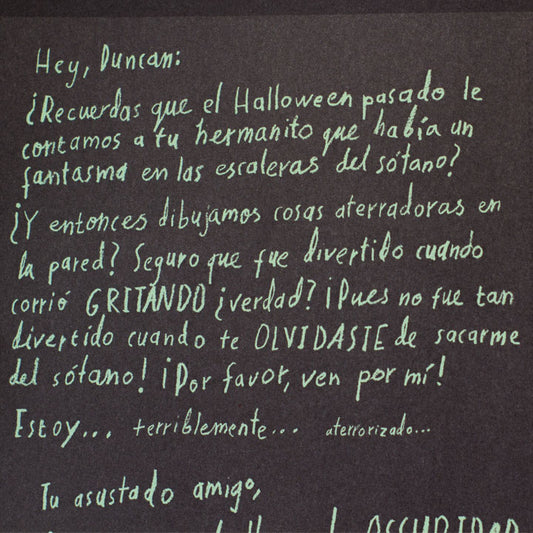 Hey, Duncan:
¿Recuerdas que el Halloween pasado le
contamos a tu hermanito que había un
fantasma en las escaleras del sótano?
¿Y entonces dibujamos cosas aterradoras en
la pared? Seguro que fue divertido cuando
corrió GRITANDO ¿verdad? ¡Pues no fue tan
divertido cuando te OLVIDASTE de sacarme
del sótano! ¡Por favor, ven por mí!
Estoy... terriblemente... aterrorizado...
Tu asustado amigo,